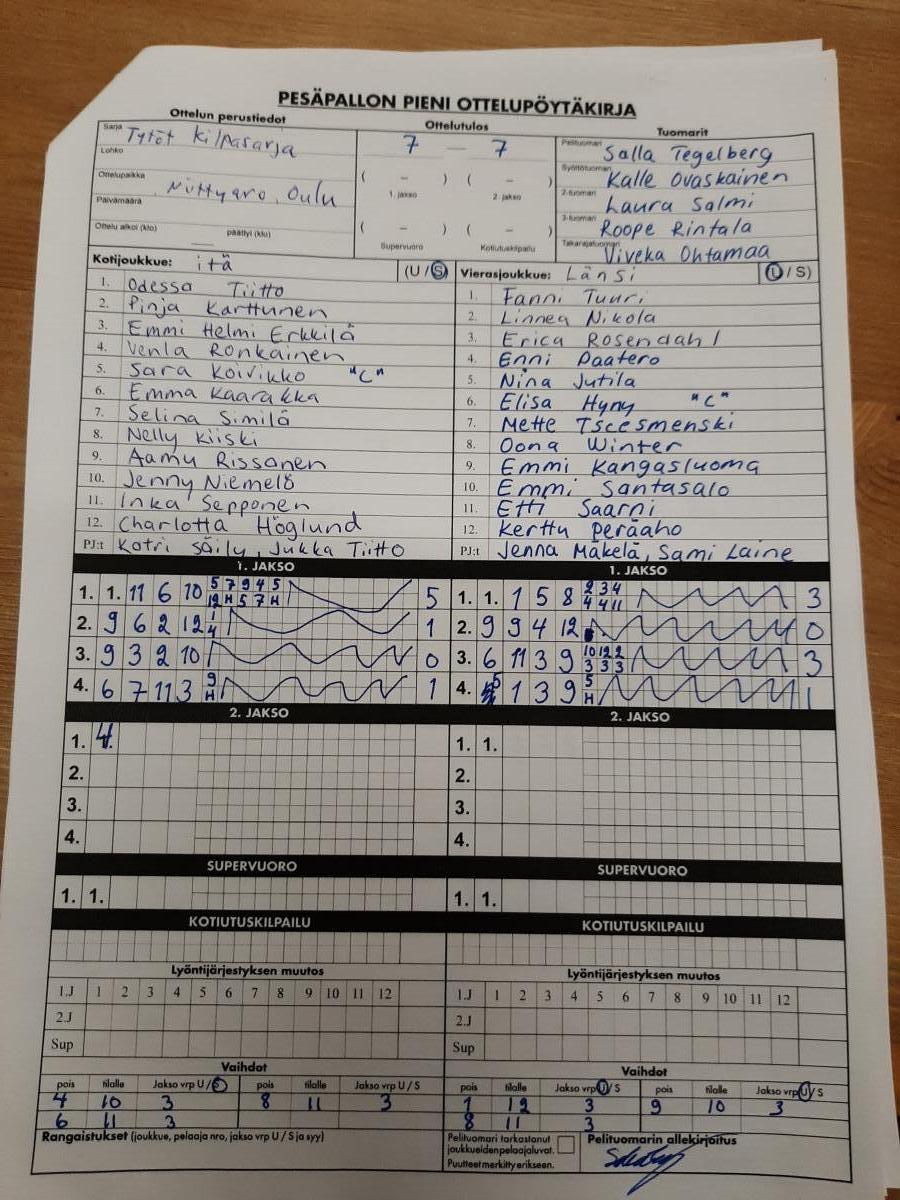 PESÄPALLON PIENI OTTELUPÖYTÄKIRJA
Ottelun perustiedot Ottelutulos Tuomarit
Sarja Tytöt kilpasarja
Lohko
Ottelupaikka Niittyaro, Oulu
Päivämäärä
Ottelu alkoi (klo) päättyi (klo)
7 — 7
( – ) ( – )
1. jakso 2. jakso
( – ) ( – )
Supervuoro Kotiutuskilpailu
Pelituomari Salla Tegelberg
Syöttötuomari Kalle Ovaskainen
2-tuomari Laura Salmi
3-tuomari Roope Rintala
Takarajatuomari Viveka Ohtamaa
Kotijoukkue: itä (U / S)
1. Odessa Tiitto
2. Pinja Karttunen
3. Emmi Helmi Erkkilä
4. Venla Ronkainen
5. Sara Koivikko "C"
6. Emma Kaarakka
7. Selina Similä
8. Nelly Kiiski
9. Aamu Rissanen
10. Jenny Niemelä
11. Inka Sepponen
12. Charlotta Höglund
PJ:t Katri Säily, Jukka Tiitto
Vierasjoukkue: Länsi (U / S)
1. Fanni Tuuri
2. Linnea Nikola
3. Erica Rosendahl
4. Enni Paatero
5. Nina Jutila
6. Elisa Hyny "C"
7. Mette Tscesmenski
8. Oona Winter
9. Emmi Kangasluoma
10. Emmi Santasalo
11. Etti Saarni
12. Kerttu Peräaho
PJ:t Jenna Mäkelä, Sami Laine
1. JAKSO
1. 1. 11 6 10 5 7 9 4 5 5
12 H 5 7 H
2. 9 6 2 12 1 1
4
3. 9 3 2 10 0
4. 6 7 11 3 9 1
H
1. JAKSO
1. 1. 1 5 8 2 3 4 3
4 4 11
2. 9 9 4 12 0
3. 6 11 3 9 10 12 2 3
3 3 3
4. 5 1 3 9 5 1
H
2. JAKSO
1. 4.
2.
3.
4.
2. JAKSO
1. 1.
2.
3.
4.
SUPERVUORO SUPERVUORO
1. 1. 1. 1.
KOTIUTUSKILPAILU KOTIUTUSKILPAILU
Lyöntijärjestyksen muutos
1.J 1 2 3 4 5 6 7 8 9 10 11 12
2.J
Sup
Lyöntijärjestyksen muutos
1.J 1 2 3 4 5 6 7 8 9 10 11 12
2.J
Sup
Vaihdot
pois tilalle Jakso vrp U / S pois tilalle Jakso vrp U / S
4 10 3 8 11 3
6 11 3
Vaihdot
pois tilalle Jakso vrp U / S pois tilalle Jakso vrp U / S
1 12 3 9 10 3
8 11 3
Rangaistukset (joukkue, pelaaja nro, jakso vrp U / S ja syy)
Pelituomari tarkastanut
joukkueiden pelaajaluvat.
Puutteet merkitty erikseen.
Pelituomarin allekirjoitus